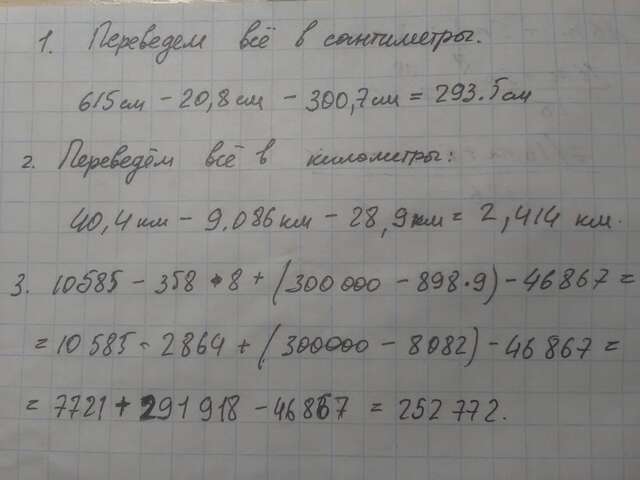 1. Переведем всё в сантиметры.
615см - 20,8см - 300,7см = 293.5см
2. Переведём всё в километры:
40,4км - 9.086км - 28,9км = 2,414 км.
3. 10585 - 358 • 8 + (300 000 - 898 • 9) - 46867 =
= 10 585 - 2864 + (300000 - 8082) - 46 867 =
= 7721 + 291 918 - 46867 = 252 772.